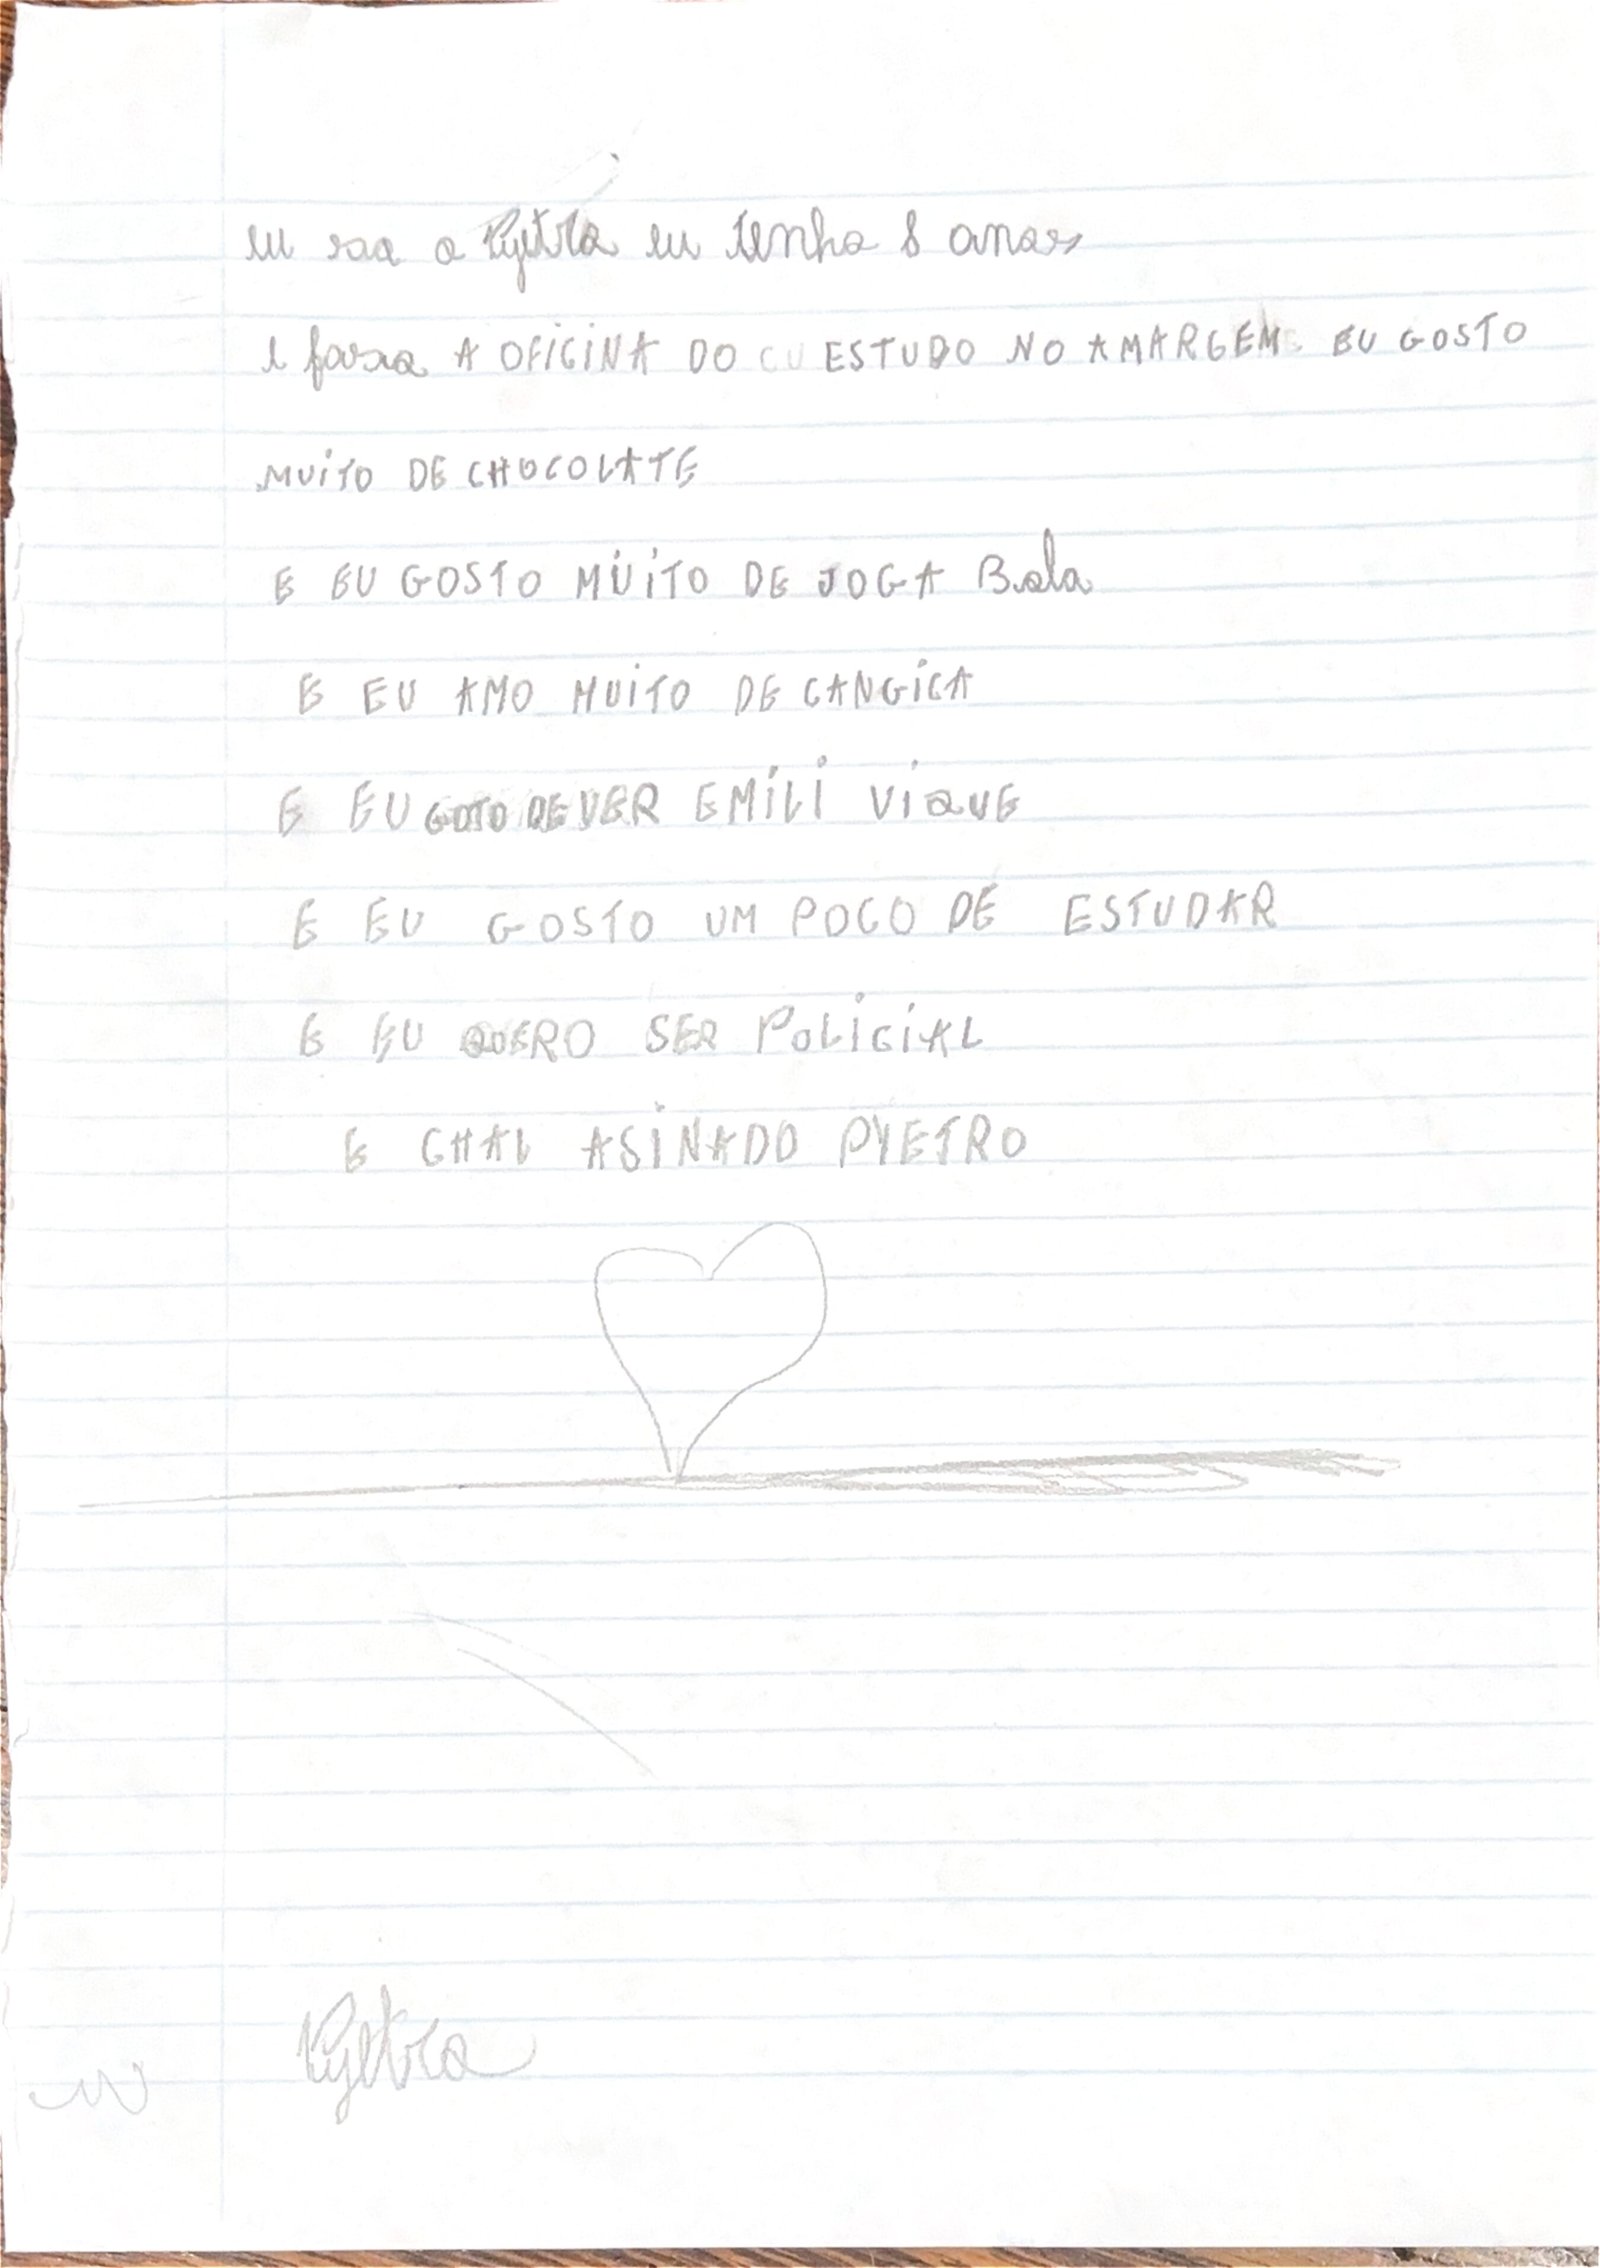 eu sou o Pyetro eu tenho 8 anos
e faso A OFICINA DO ESTUDO NO AMARGEM. EU GOSTO
MUITO DE CHOCOLATE
E EU GOSTO MUITO DE JOGA Bola
E EU AMO MUITO DE CANGICA
E EU GOTO DE VER EMILI VIQUE
E EU GOSTO UM POCO DE ESTUDAR
E EU QUERO SER POLICIAL
E CHAL ASINADO PYETRO
Pyetro